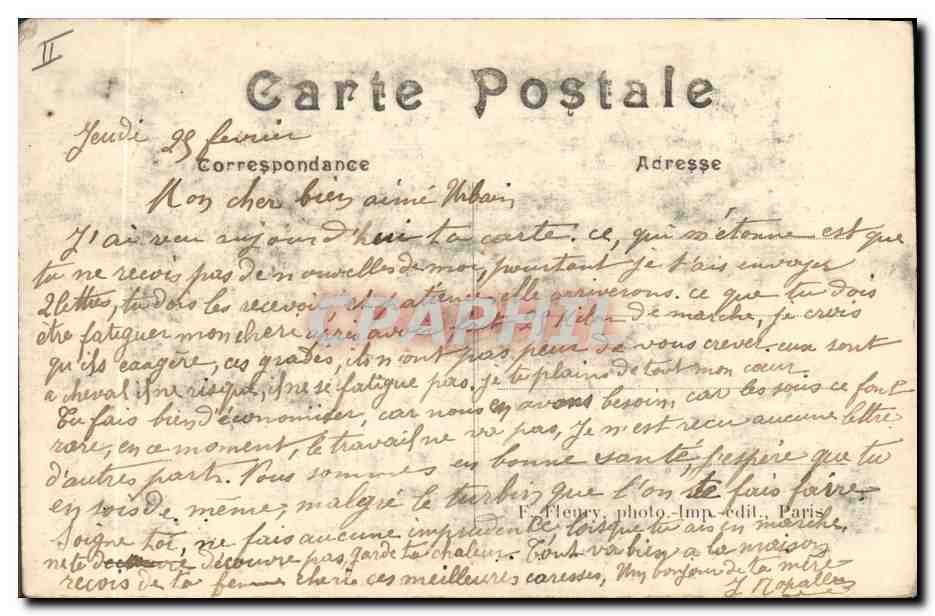 II
Carte Postale
Jeudi 25 fevrier
Correspondance
Adresse
Mon cher bien aimé Urbain
J'ai recu aujourd'hui ta carte. ce, qui m'étonne est que
tu ne recois pas de nouvelles de moi, pourtant je t'ais envoyer
2 lettres, tu dois les recevoir elle arriverons. ce que tu dois
être fatiguer mon chere avoir fait de marche, je crois
qu'ils exagère, ces gradés, ils n'ont pas peur de vous crever. eux sont
a cheval il ne risque, il ne se fatigue pas. je te plains de tout mon cœur.
Tu fais bien d'économiser, car nous en avons besoin car les sous ce font
rare, en ce moment, le travail ne va pas, Je n'est recu aucune lettre
d'autres part. Nous sommes en bonne santé, j'espère que tu
en sois de même, malgré le turbin que l'on te fais faire.
F. Fleury, photo.-Imp.-édit., Paris
Soigne toi, ne fais aucune imprudence lorsque tu ais en marche
ne te découvre pas, garde ta chaleur. Tout va bien a la maison
recois de ta femme cherie ces meilleures caresses, Un bonjour de ta mère
CPAPHIL